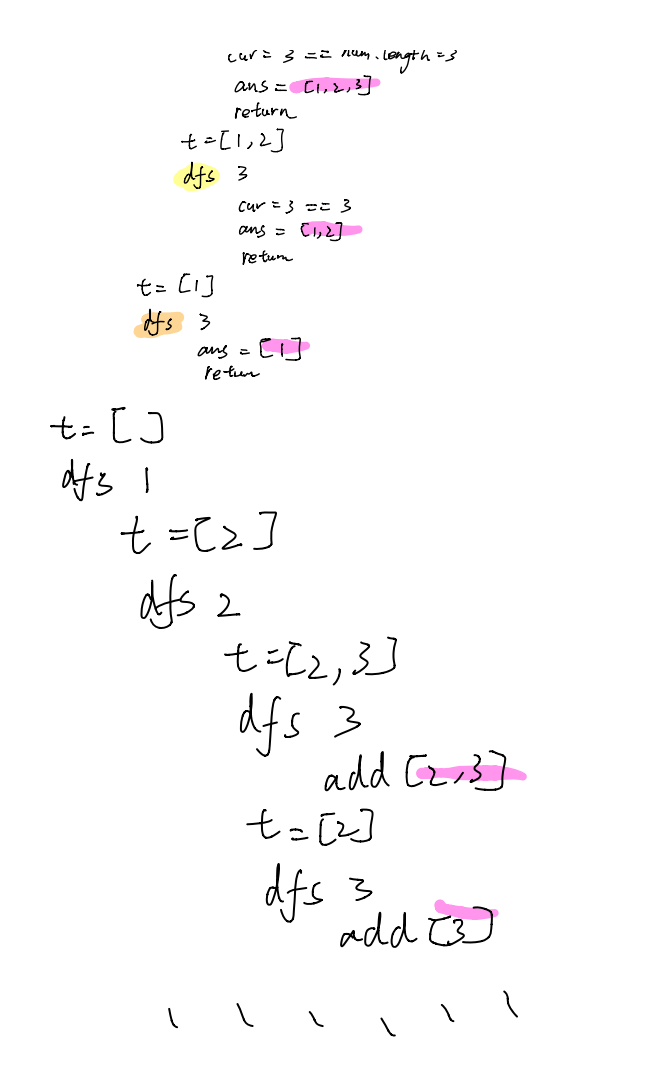 cur = 3 == num.length = 3
ans = [1,2,3]
return
t=[1,2]
dfs 3
cur = 3 == 3
ans = [1,2]
return
t= [1]
dfs 3
ans = [1]
return
t= [ ]
dfs 1
t =[2]
dfs 2
t=[2,3]
dfs 3
add [2,3]
t=[2]
dfs 3
add [3]